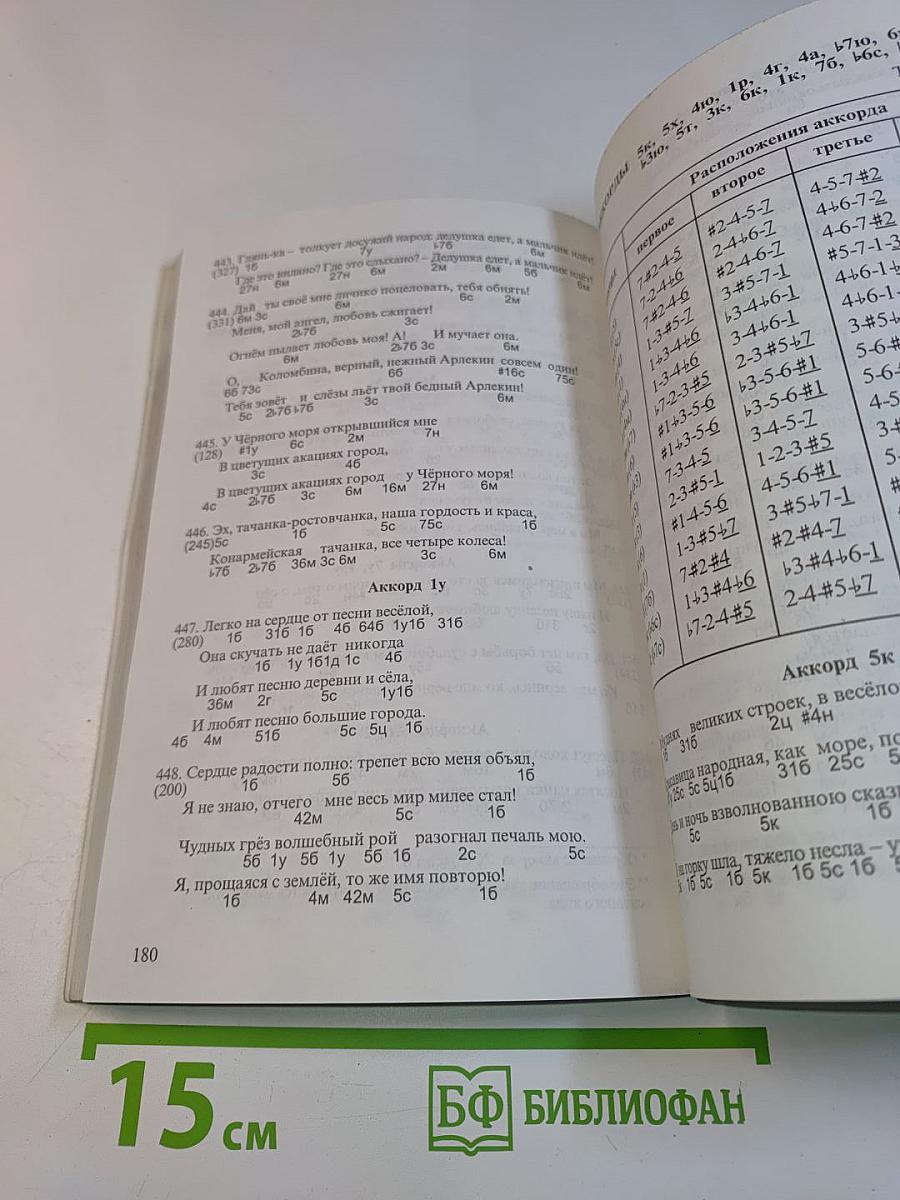 443. Глянь-ка – толкует досужий народ: дедушка едет, а мальчик идёт!
(327) 1б 7у ♭7б 6м
Где это видано? Где это слыхано? – Дедушка едет, а мальчик идёт!
27н 6м 27н 6м 2м 6м 5б 6м
444. Дай ты своё мне личико поцеловать, тебя обнять!
(331) 6м 3с 6м 6с 2м
Меня, мой ангел, любовь сжигает!
2♭7б 3с
Огнём пылает любовь моя! А! И мучает она.
6м 2♭7б 3с 6м
О, Коломбина, верный, нежный Арлекин совсем один!
6б 73с 6б #16с 75с
Тебя зовёт и слёзы льёт твой бедный Арлекин!
5с 2♭7б ♭7б 3с 6м
445. У Чёрного моря открывшийся мне
(128) #1у 6с 2м 7н
В цветущих акациях город,
3с 4б
В цветущих акациях город у Чёрного моря!
4с 2♭7б 3с 6м 16м 27н 6м
446. Эх, тачанка-ростовчанка, наша гордость и краса,
(245)5с 1б 5с 75с 1б
Конармейская тачанка, все четыре колеса!
♭7б 2♭7б 36м 3с 6м 3с 6м
Аккорд 1у
447. Легко на сердце от песни весёлой,
(280) 1б 31б 1б 4б 64б 1у1б 31б
Она скучать не даёт никогда
1б 1у 1б1д 1с 4б
И любят песню деревни и сёла,
36м 2г 5с 1у1б
И любят песню большие города.
4б 4м 51б 5с 5ц 1б
448. Сердце радости полно: трепет всю меня объял,
(200) 1б 5б 1б
Я не знаю, отчего мне весь мир милее стал!
42м 5с 1б
Чудных грёз волшебный рой разогнал печаль мою.
5б 1у 5б 1у 5б 1б 2с 5с
Я, прощаяся с землёй, то же имя повторю!
1б 4м 42м 5с 1б
180
5к, 5х, 4ю, 1р, 4г, 4а, ♭7ю,
♭3ю, 5т, 3к, 6к, 1к, 7б, ♭6с,
Расположения аккорда
первое второе третье
7-#2-4-5 #2-4-5-7 4-5-7-#2
7-2-4♭6 2-4♭6-7 4♭6-7-2
7#2-4-6 #2-4-6-7 4-6-7-#2
1-3-#5-7 3-#5-7-1 #5-7-1-3
1♭3-4♭6 ♭3-4♭6-1
1-3-4♭6 3-4♭6-1
♭7-2-3-#5 2-3-#5♭7
#1♭3-5-6 ♭3-5-6-#1
#1♭3-5-6 ♭3-5-6-#1
7-3-4-5 3-4-5-7
2-3-#5-1 1-2-3-#5
#1-4-5-6 4-5-6-#1
1-3-#5♭7 3-#5♭7-1
7#2#4 #2-#4-7
1♭3-#4♭6 ♭3-#4♭6-1
♭7-2-4-#5 2-4-#5♭7
Аккорд 5к
великих строек, в весёло
31б 2ц #4н
народная, как море,
25с 5с 5ц1б 31б 25с
и ночь взволнованною
5с 5к 1б
горку шла, тяжело несла –
1б 5с 1б 5к 1б 5с 1б
15 см
БФ БИБЛИОФАН